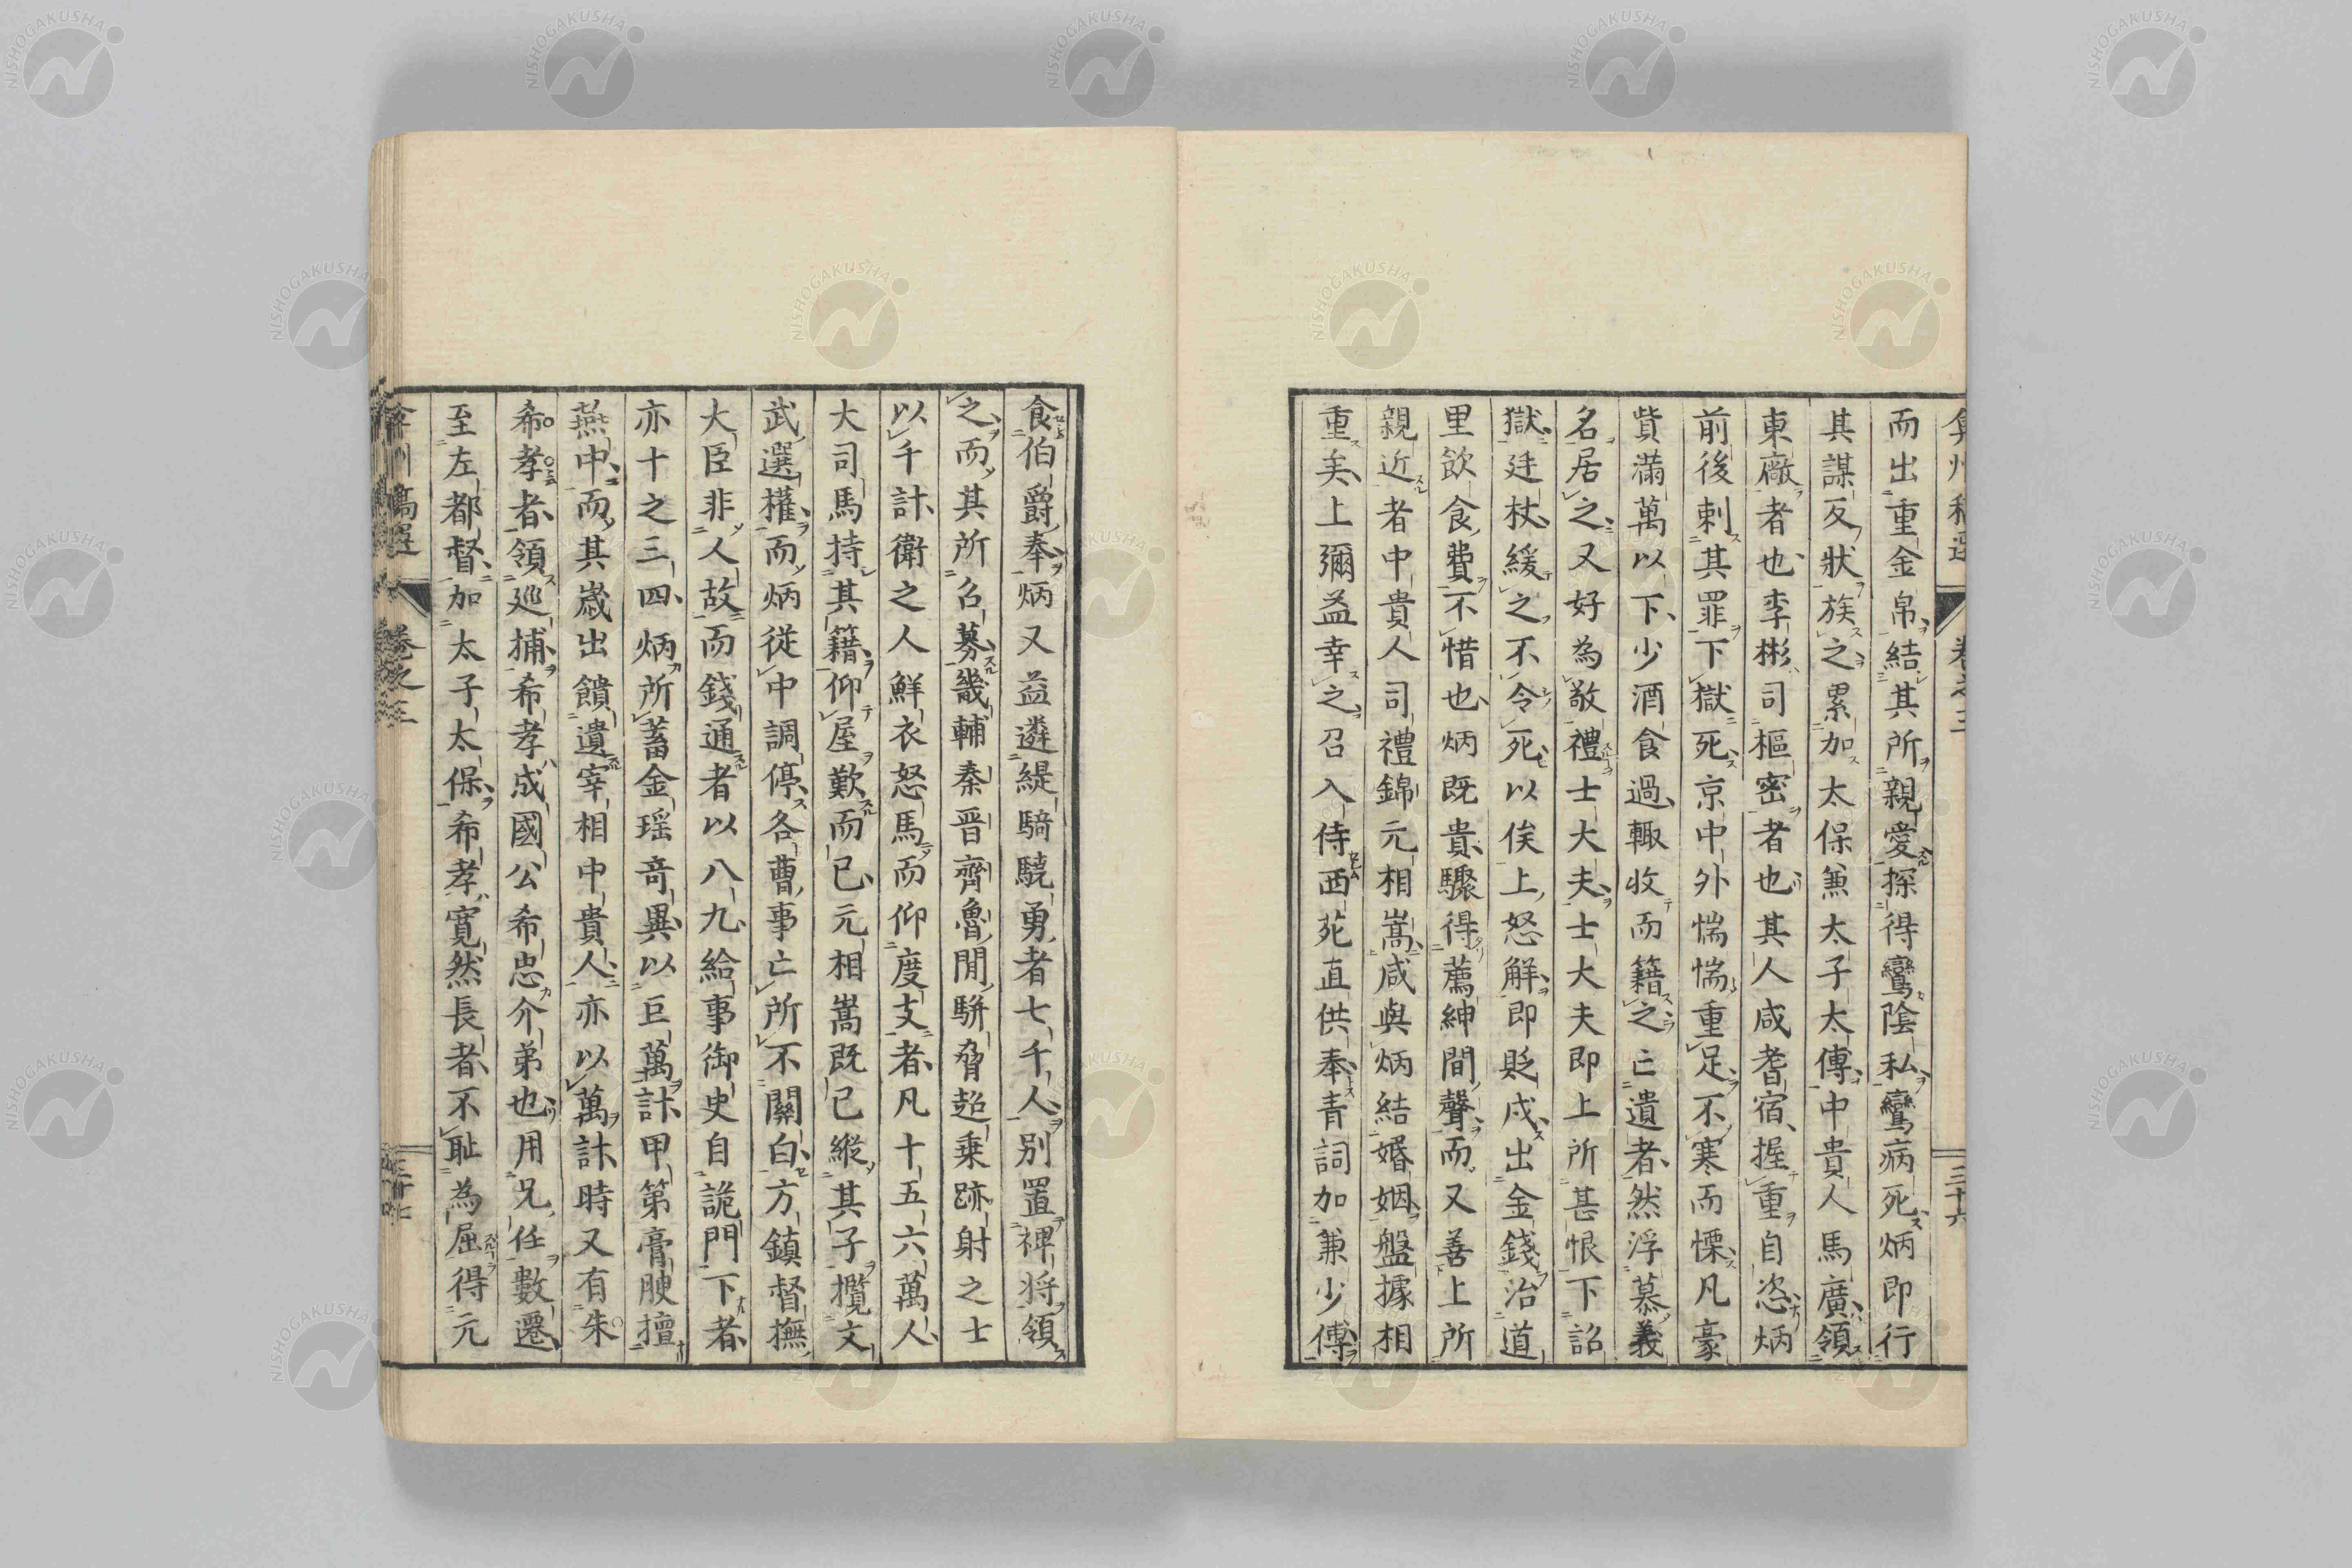 而出重金帛結其所親愛探得鸞陰私鸞病死炳即行
其謀反狀族之累加太保兼太子太傅中貴人馬廣領
東廠者也李彬司樞密者也其人咸耆宿握重自恣炳
前後刺其罪下獄死京中外惴惴重足不寒而慄凡豪
貲滿萬以下少酒食過輙收而籍之亡遺者然浮慕義
名居之又好為敬禮士大夫士大夫即上所甚恨下詔
獄廷杖緩之不令死以俟上怒解即貶戍出金錢治道
里飲食費不惜也炳既貴驟得薦紳間聲而又善上所
親近者中貴人司禮錦元相嵩咸與炳結婚姻盤據相
重矣上彌益幸之召入侍西苑直供奉青詞加兼少傅
食伯爵奉炳又益遴緹騎驍勇者七千人別置裨将領
之而其所召募畿輔秦晉齊魯間駢脅超乗跡射之士
以千計衛之人鮮衣怒馬而仰度支者凡十五六萬人
大司馬持其籍仰屋歎而已元相嵩既已縱其子攬文
武選權而炳従中調停各曹事亡所不關白方鎮督撫
大臣非人故而錢通者以八九給事御史自詭門下者
亦十之三四炳所蓄金瑶竒異以巨萬計甲第膏腴擅
燕中而其歳出饋遺宰相中貴人亦以萬計時又有朱
希孝者領廵捕希孝成國公希忠介弟也用兄任數遷
至左都督加太子太保希孝寛然長者不耻為屈得元
卷之三
三十六
NISHOGAKUSHA